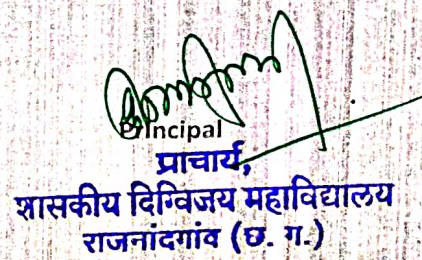 Principal
प्राचार्य,
शासकीय दिग्विजय महाविद्यालय
राजनांदगांव (छ. ग.)